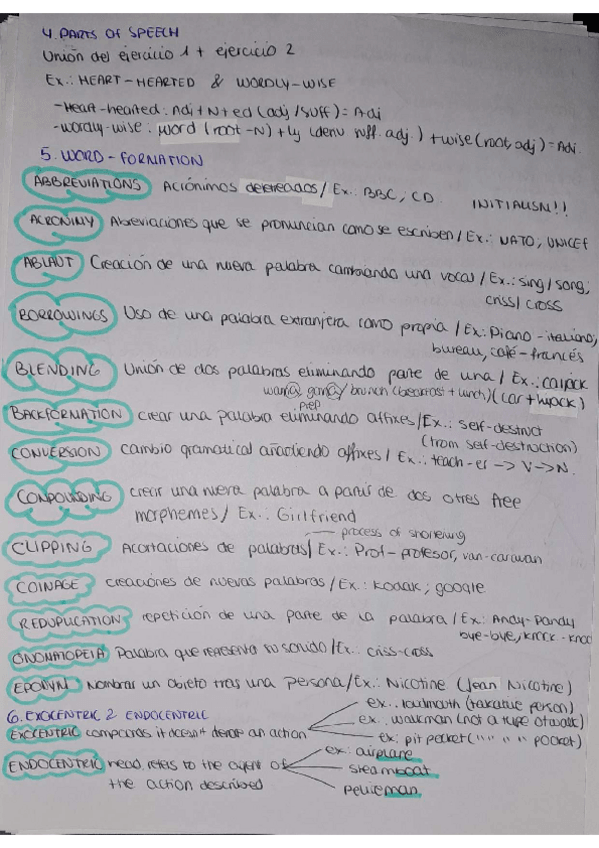 4. PARTS OF SPEECH
Unión del ejercicio 1 + ejercicio 2
Ex.: HEART-HEARTED & WORDLY-WISE
-Heart-hearted: Adj + N + ed (adj/suff) = Adj
-wordly-wise: word (root-N) + ly (deriv suff. adj.) + wise (root adj) = Adj.
5. WORD-FORMATION
ABBREVIATIONS Acrónimos deletreados / Ex.: BBC, CD. INITIALISM!!
ACRONIMY Abreviaciones que se pronuncian como se escriben / Ex.: NATO; UNICEF
ABLAUT Creación de una nueva palabra cambiando una vocal / Ex.: sing/song;
criss/cross
BORROWINGS Uso de una palabra extranjera como propia / Ex: Piano-italiano;
bureau, café-francés
BLENDING Unión de dos palabras eliminando parte de una / Ex.: carjack
brunch (breakfast + lunch) (car + hijack)
BACKFORNATION crear una palabra eliminando affixes / Ex.: self-destruct
(from self-destruction)
CONVERSION cambio gramatical añadiendo affixes / Ex.: teach-er -> V->N.
COMPOUNDING crear una nueva palabra a partir de dos otres free
morphemes / Ex.: Girlfriend
process of shortening
CLIPPING Acortaciones de palabras / Ex.: Prof-profesor, van-caravan
COINAGE creaciones de nuevas palabras / Ex.: Kodak; google
REDUPLICATION repetición de una parte de la palabra / Ex: Andy-Pandy
bye-bye, knock-knock
ONOMATOPEIA Palabra que representa su sonido / Ex.: criss-cross
EPONYM Nombrar un objeto tras una persona / Ex.: Nicotine (Jean Nicotine)
6. EXOCENTRIC 2 ENDOCENTRIC
ex.: loudmouth (talkative person)
EXOCENTRIC compounds it doesn't denote an action
ex.: walkman (not a type of walk)
ex: pitpocket ("" "" " pocket)
ENDOCENTRIC head refers to the agent of
the action described
ex: airplane
steamboat
policeman